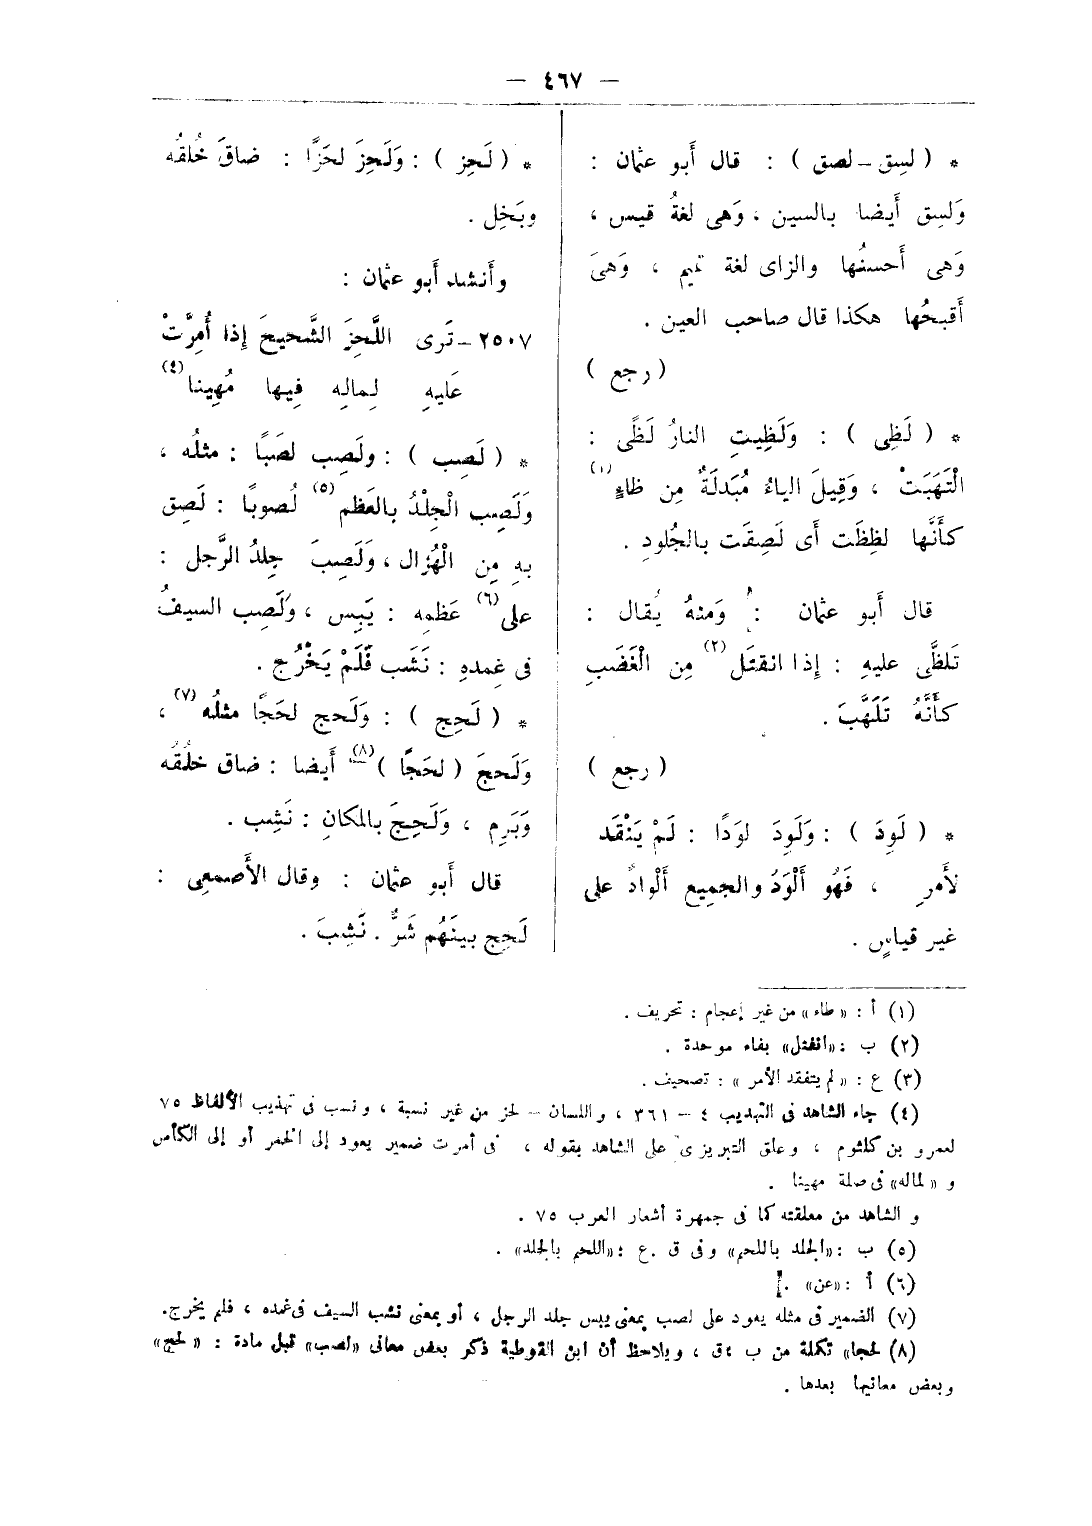 — ٤٦٧ —
* ( لسِق – لصق ) : قال أَبو عثمان :
وَلسِق أَيضا بالسين ، وَهى لغةُ قيس ،
وَهى أَحسنُها والزاى لغة تميم ، وَهىَ
أَقبحُها هكذا قال صاحب العين .
( رجع )
* ( لَظِى ) : وَلَظِيتِ النارُ لَظًى :
الْتَهَبَتْ ، وَقِيلَ الياءُ مُبَدلَةٌ مِن ظاءٍ (١)
كأَنَّها لظِظَت أَى لَصِقَت بالجُلودِ .
قال أَبو عثمان : وَمنهُ يُقال :
تَلظَّى عليهِ : إِذا انقتَل (٢) مِن الْغَضَبِ
كأَنَّهُ تَلَهَّبَ .
( رجع )
* ( لَوِدَ ) : وَلَوِدَ لوَدًا : لَمْ يَنْقَد
لأَمرٍ ، فَهُو أَلْوَدُ والجمِيع أَلْوادٌ على
غير قياسٍ .
* ( لَحِز ) : وَلَحِزَ لحَزًا : ضاقَ خُلقُه
وبَخِل .
وأَنشد أَبو عثمان :
٢٥٠٧ – تَرى اللَّحِزَ الشَّحيحَ إِذا أُمِرَّتْ
عَليهِ لِمالِه فِيها مُهِينا (٤)
* ( لَصِب ) : ولَصِب لصَبًا : مثلُه ،
وَلَصِب الْجِلْدُ بالعَظم (٥) لُصوبًا : لَصِق
بهِ مِن الْهُزال ، وَلَصِبَ جِلدُ الرَّجل :
على (٦) عَظمِه : يَبِس ، وَلَصِب السيفُ
فى غِمدهِ : نَشَب فَلَمْ يَخْرُج .
* ( لَحِج ) : وَلَحج لحَجًا مثلُه (٧) ،
وَلَحجَ ( لحَجًا ) (٨) أَيضا : ضاق خلُقُه
وَبَرِم ، وَلَحِجَ بالمكانِ : نَشِب .
قال أَبو عثمان : وقال الأَصمعى :
لَحِج بينَهُم شَرٌّ . نَشِبَ .
(١) أ : «طاء» من غير إعجام : تحريف .
(٢) ب : «انفتل» بفاء موحدة .
(٣) ع : «لم يتفقد الأمر» : تصحيف .
(٤) جاء الشاهد فى التهذيب ٤ – ٣٦١ ، واللسان – لحز من غير نسبة ، ونسب فى تهذيب الألفاظ ٧٥
لعمرو بن كلثوم ، وعلق التبريزى على الشاهد بقوله ، فى أمرت ضمير يعود إلى الخمر أو إلى الكأس
و «لماله» فى صلة مهينا .
والشاهد من معلقته كما فى جمهرة أشعار العرب ٧٥ .
(٥) ب : «الجلد باللحم» وفى ق . ع : «اللحم بالجلد» .
(٦) أ : «عن» .
(٧) الضمير فى مثله يعود على لصب بمعنى يبس جلد الرجل ، أو بمعنى نشب السيف فى غمده ، فلم يخرج.
(٨) لحجا» تكملة من ب ، ق ، ويلاحظ أن ابن القوطية ذكر بعض معانى «لصب» قبل مادة : «لحج»
وبعض معانيها بعدها .